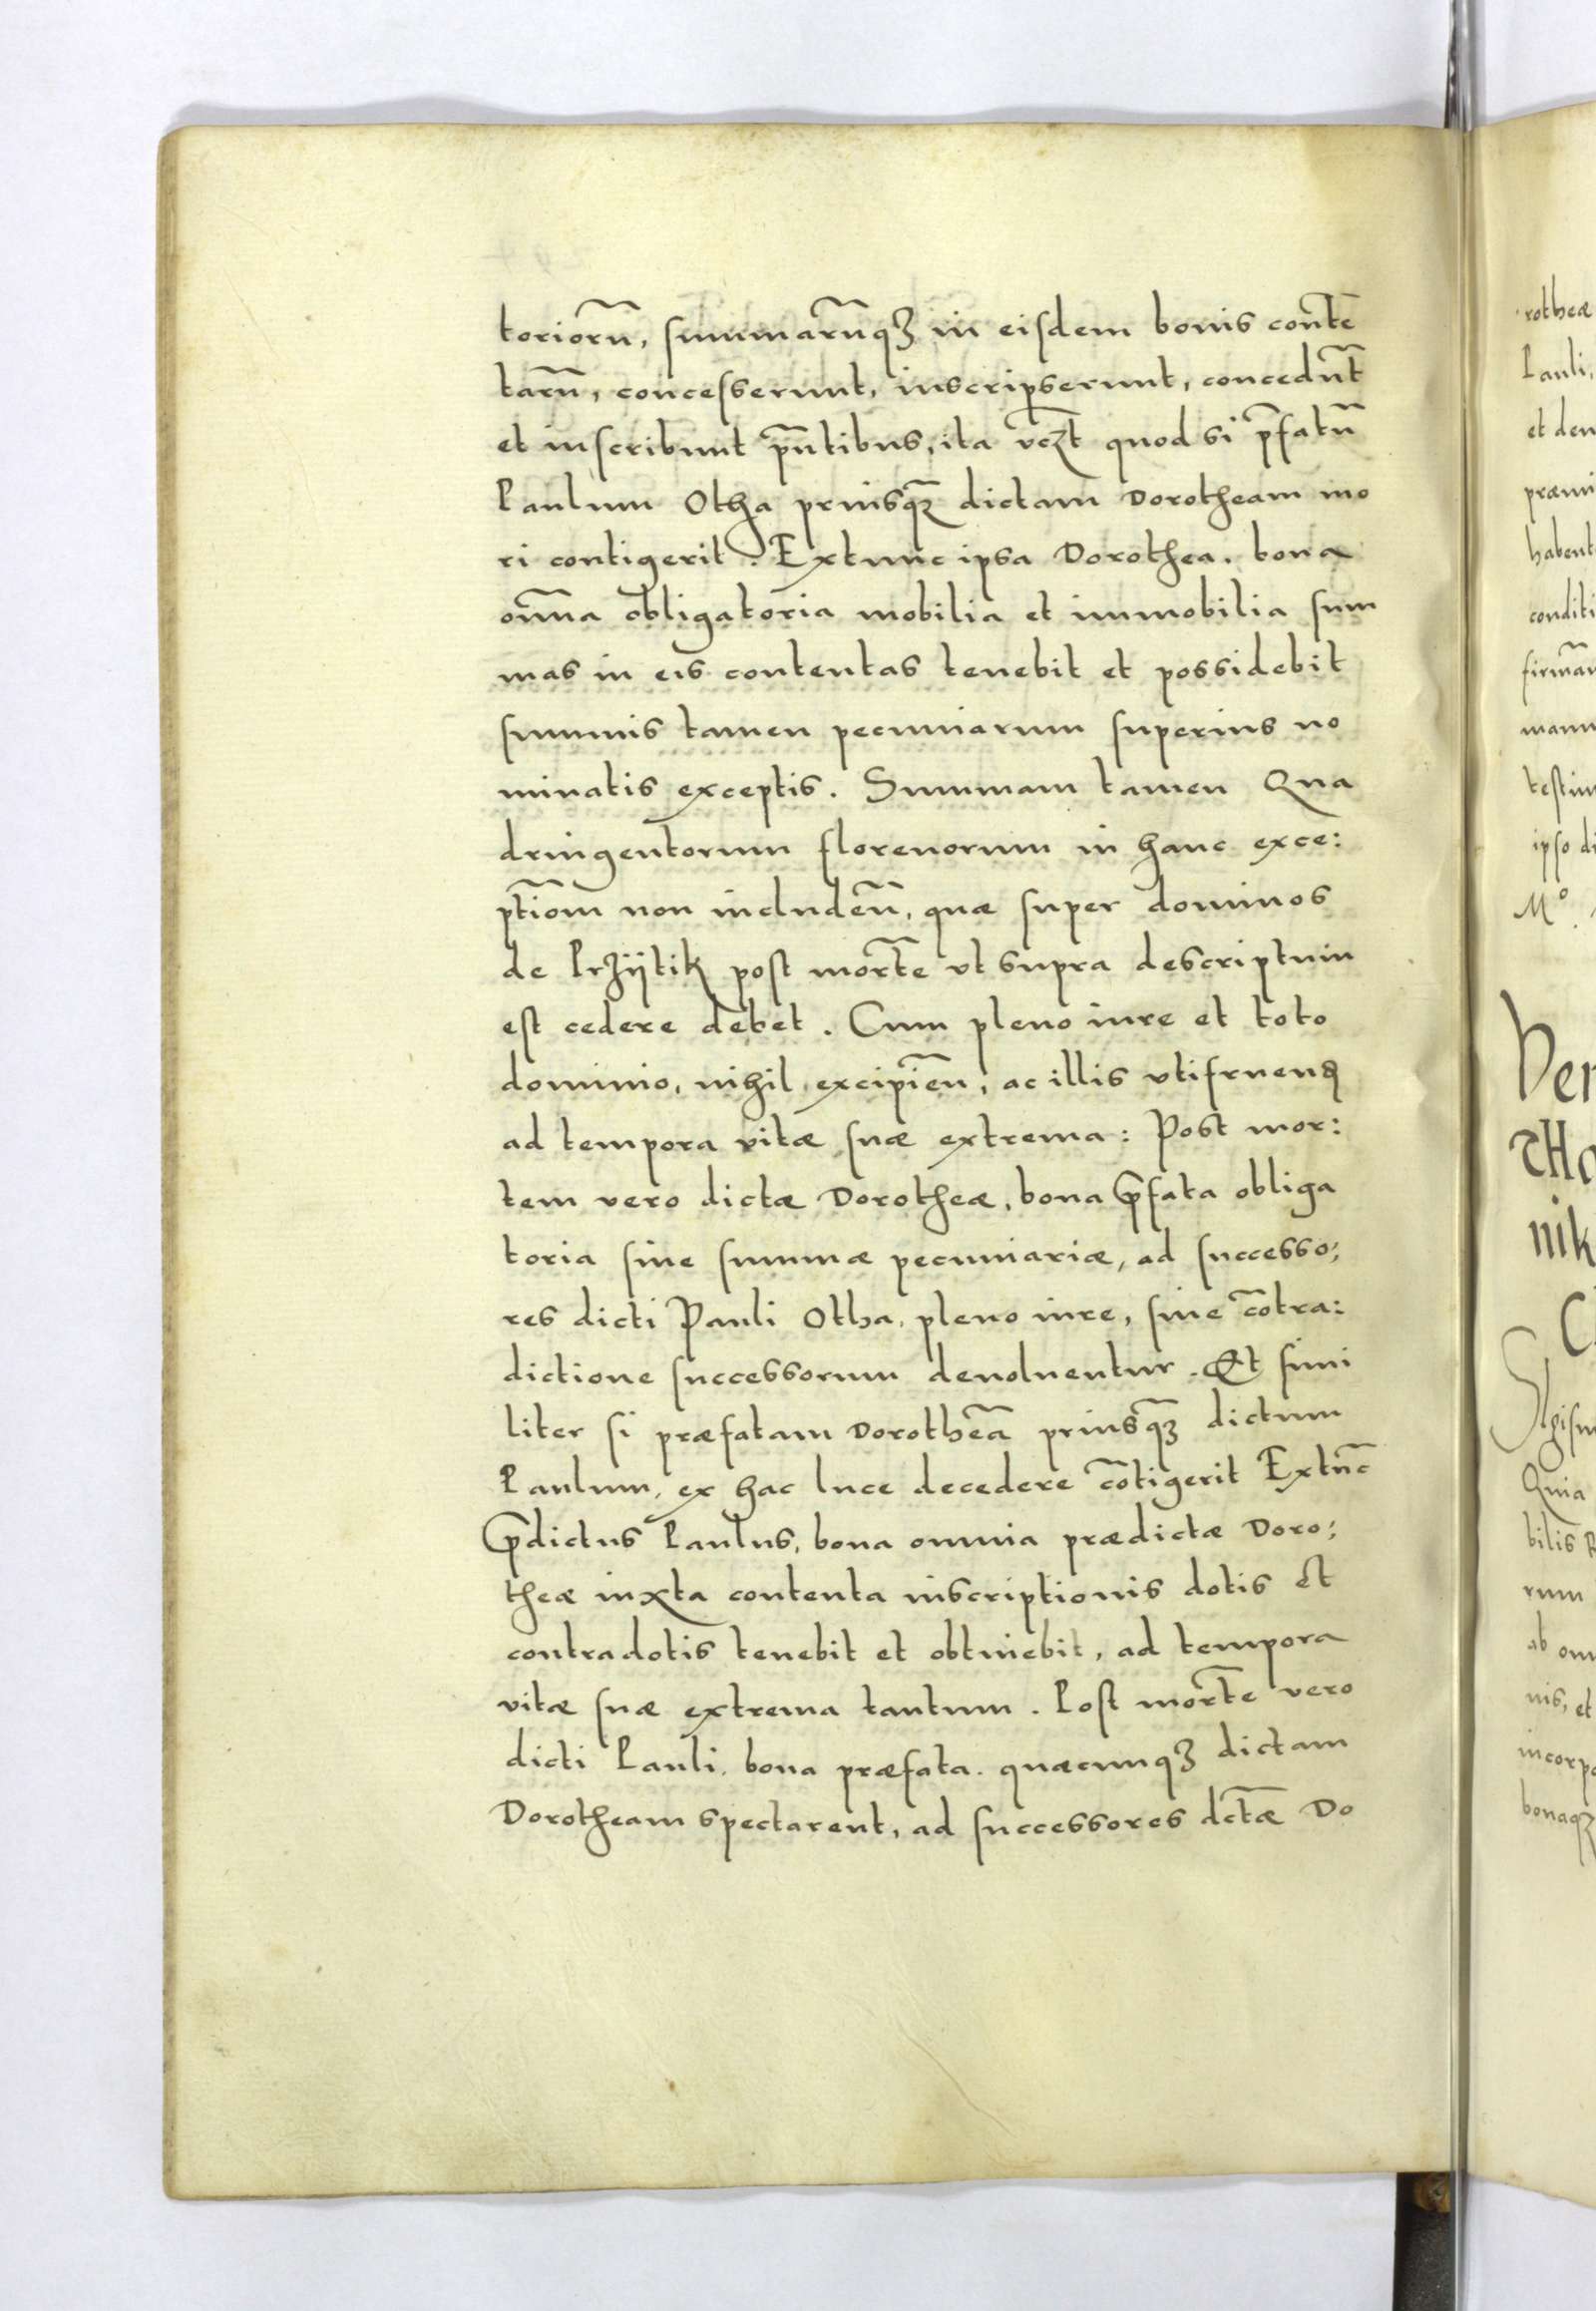 toriorũ, summarũqꝫ in eisdem bonis contẽ
tarũ, concesserunt, inscripserunt, concedũt
et inscribunt pñtibus, ita vcꝫt quod si p̃fatũ
Paulum Otha priusq̃ꝫ dictam Dorotheam mo
ri contigerit. Extunc ipsa Dorothea. bona
om̃a obligatoria mobilia et immobilia sum
mas in eis contentas tenebit et possidebit
summis tamen pecuniarum superius no
minatis exceptis. Summam tamen Qua
dringentorum florenorum in hanc exce:
ptiom̃ non includeñ, quæ super dominos
de Prziitik post mortẽ vt supra descriptum
est cedere debet. Cum pleno iure et toto
dominio, nihil excipieñ, ac illis vtifruend
ad tempora vitæ suæ extrema: Post mor:
tem vero dictæ Dorotheæ, bona p̃fata obliga
toria siue summæ pecuniariæ, ad successo:
res dicti Pauli Otha, pleno iure, sine cõtra:
dictione successorum deuoluentur. Et simi
liter si præfatam Dorotheã priusq̃ꝫ dictum
Paulum, ex hac luce decedere cõtigerit Extũc
p̃dictus Paulus, bona omnia prædictæ Doro:
theæ iuxta contenta inscriptionis dotis et
contradotis tenebit et obtinebit, ad tempora
vitæ suæ extrema tantum. Post mortẽ vero
dicti Pauli, bona præfata. quæcunqꝫ dictam
Dorotheam spectarent, ad successores dctæ̃ Do
rotheæ
Pauli,
et deu
præmi
habent
conditi
firmãu
manu
testim
ipso di
Mº.
Ver
nik
Quia
bilis
rum
ab om
nis, et
incorpo
bonaqꝫ